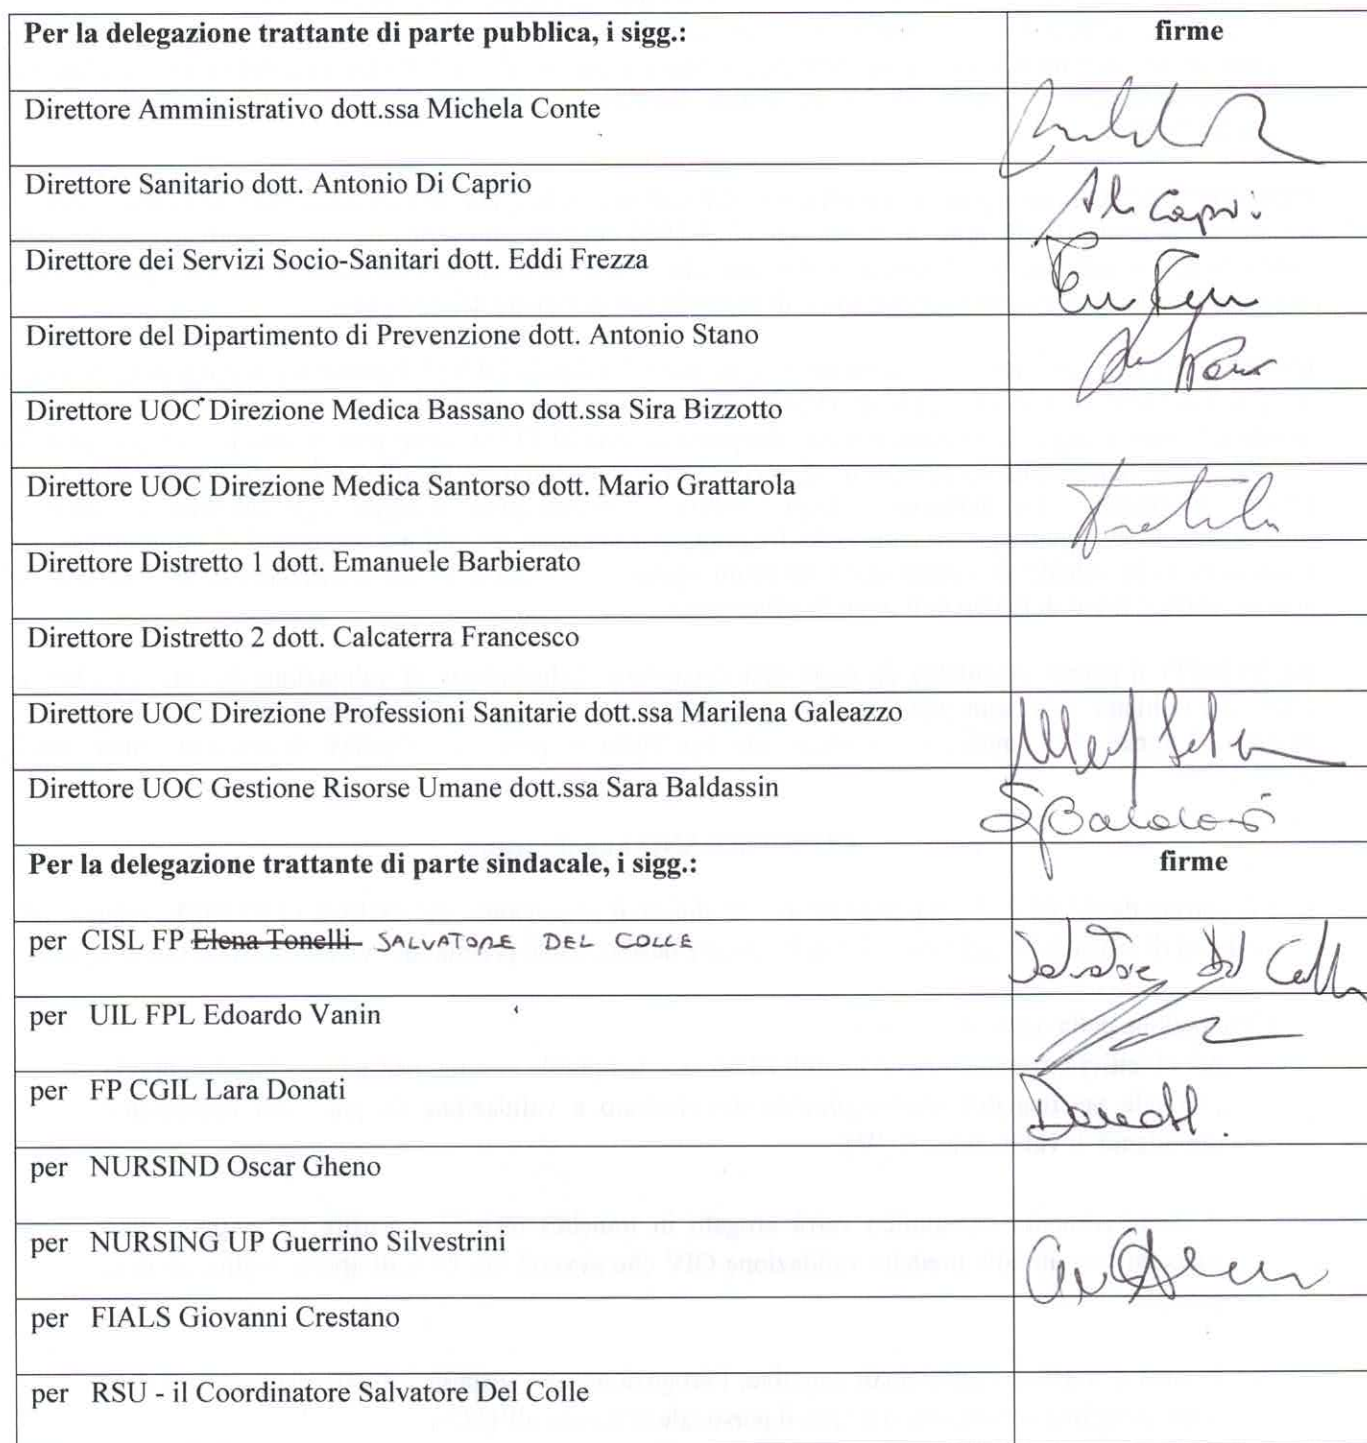 Per la delegazione trattante di parte pubblica, i sigg.: firme
Direttore Amministrativo dott.ssa Michela Conte
Direttore Sanitario dott. Antonio Di Caprio
Direttore dei Servizi Socio-Sanitari dott. Eddi Frezza
Direttore del Dipartimento di Prevenzione dott. Antonio Stano
Direttore UOC Direzione Medica Bassano dott.ssa Sira Bizzotto
Direttore UOC Direzione Medica Santorso dott. Mario Grattarola
Direttore Distretto 1 dott. Emanuele Barbierato
Direttore Distretto 2 dott. Calcaterra Francesco
Direttore UOC Direzione Professioni Sanitarie dott.ssa Marilena Galeazzo
Direttore UOC Gestione Risorse Umane dott.ssa Sara Baldassin
Per la delegazione trattante di parte sindacale, i sigg.: firme
per CISL FP Elena Tonelli SALVATORE DEL COLLE Salvatore Del Colle
per UIL FPL Edoardo Vanin
per FP CGIL Lara Donati
per NURSIND Oscar Gheno
per NURSING UP Guerrino Silvestrini
per FIALS Giovanni Crestano
per RSU - il Coordinatore Salvatore Del Colle